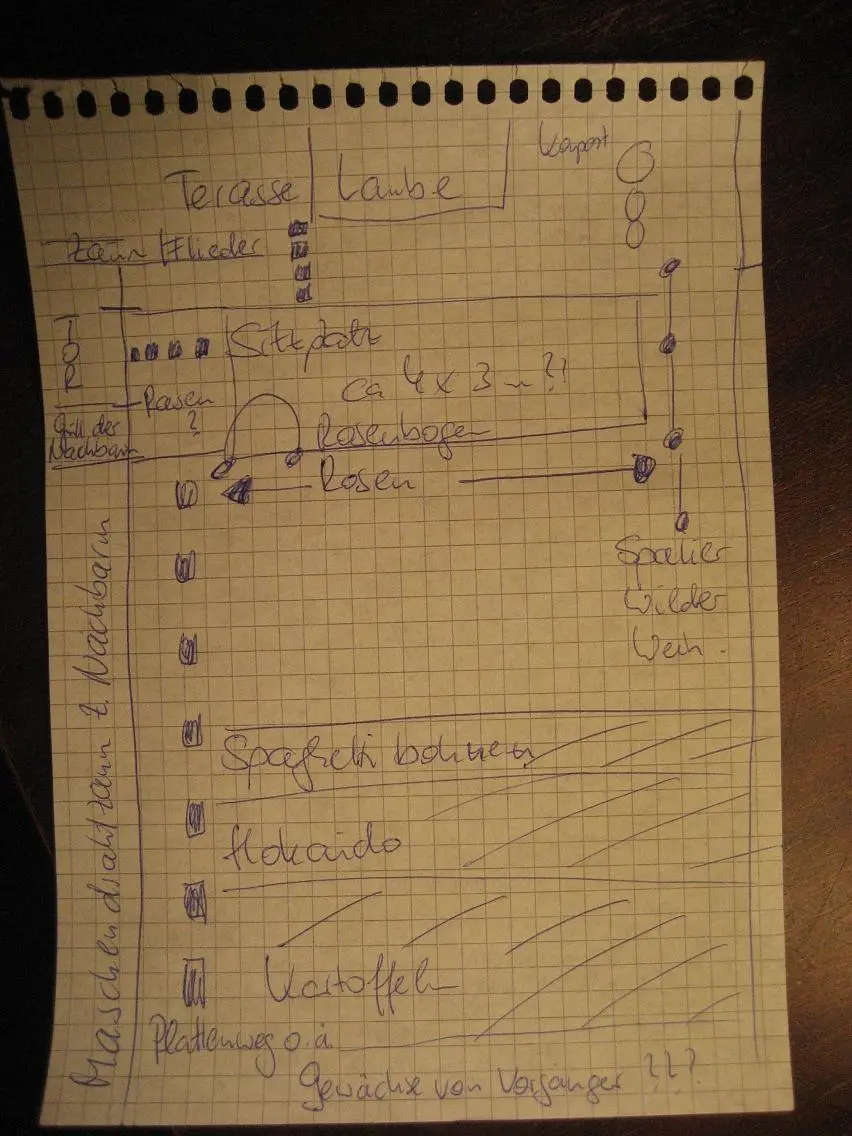 Kompost
Terasse Laube
Zaun / Flieder
TOR
Sitzplatz
ca 4 x 3 m ??
Rasen
?
Grill der
Nachbarn
Rosenbogen
Rosen
Spalier
Wilder
Wein.
Maschendrahtzaun z. Nachbarn
Spaghetti bohnen
Hokaido
Kartoffeln
Plattenweg o.ä.
Gewächse von Vorgänger ???